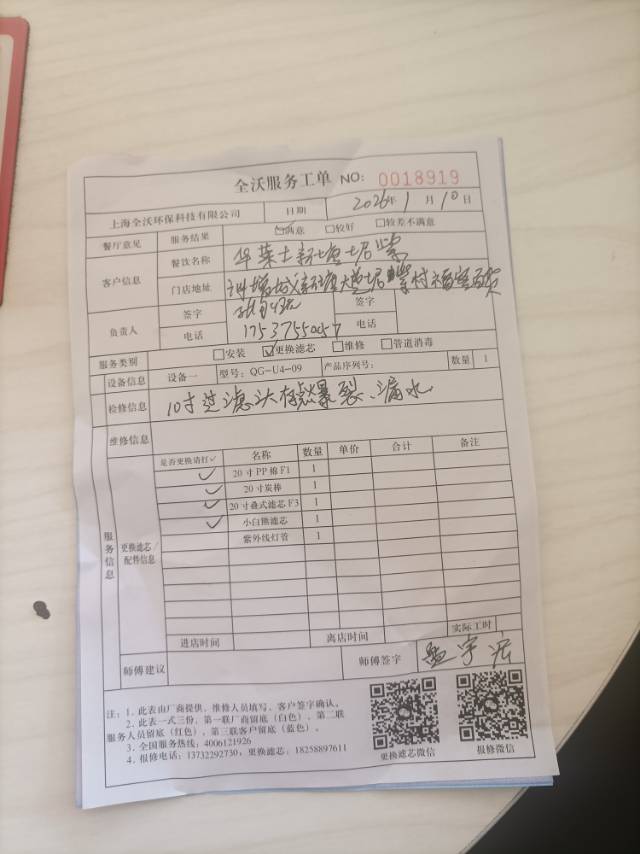 全沃服务工单 NO: 0018919
上海全沃环保科技有限公司 日期 2026年1月10日
餐厅意见 服务结果 ☑满意 □较好 □较差不满意
客户信息 餐饮名称 华莱士新塘
门店地址 新塘 村福
负责人 签字 签字
电话 17537550057 电话
服务类别 □安装 ☑更换滤芯 □维修 □管道消毒
设备信息 设备一 型号: QG-U4-09 产品序列号: 数量 1
检修信息 10寸过滤头 爆裂、漏水
维修信息
服务信息 更换滤芯/配件信息
是否更换请打✓ 名称 数量 单价 合计 备注
✓ 20寸PP棉F1 1
✓ 20寸炭棒 1
✓ 20寸叠式滤芯F3 1
✓ 小白熊滤芯 1
紫外线灯管 1
进店时间 离店时间 实际工时
师傅建议 师傅签字 孟宇
注: 1、此表由厂商提供、维修人员填写、客户签字确认。
2、此表一式三份、第一联厂商留底(白色)、第二联
服务人员留底(红色)、第三联客户留底(蓝色)。
3、全国服务热线: 4006121926
4、报修电话: 13732292730, 更换滤芯: 18258897611
更换滤芯微信 报修微信